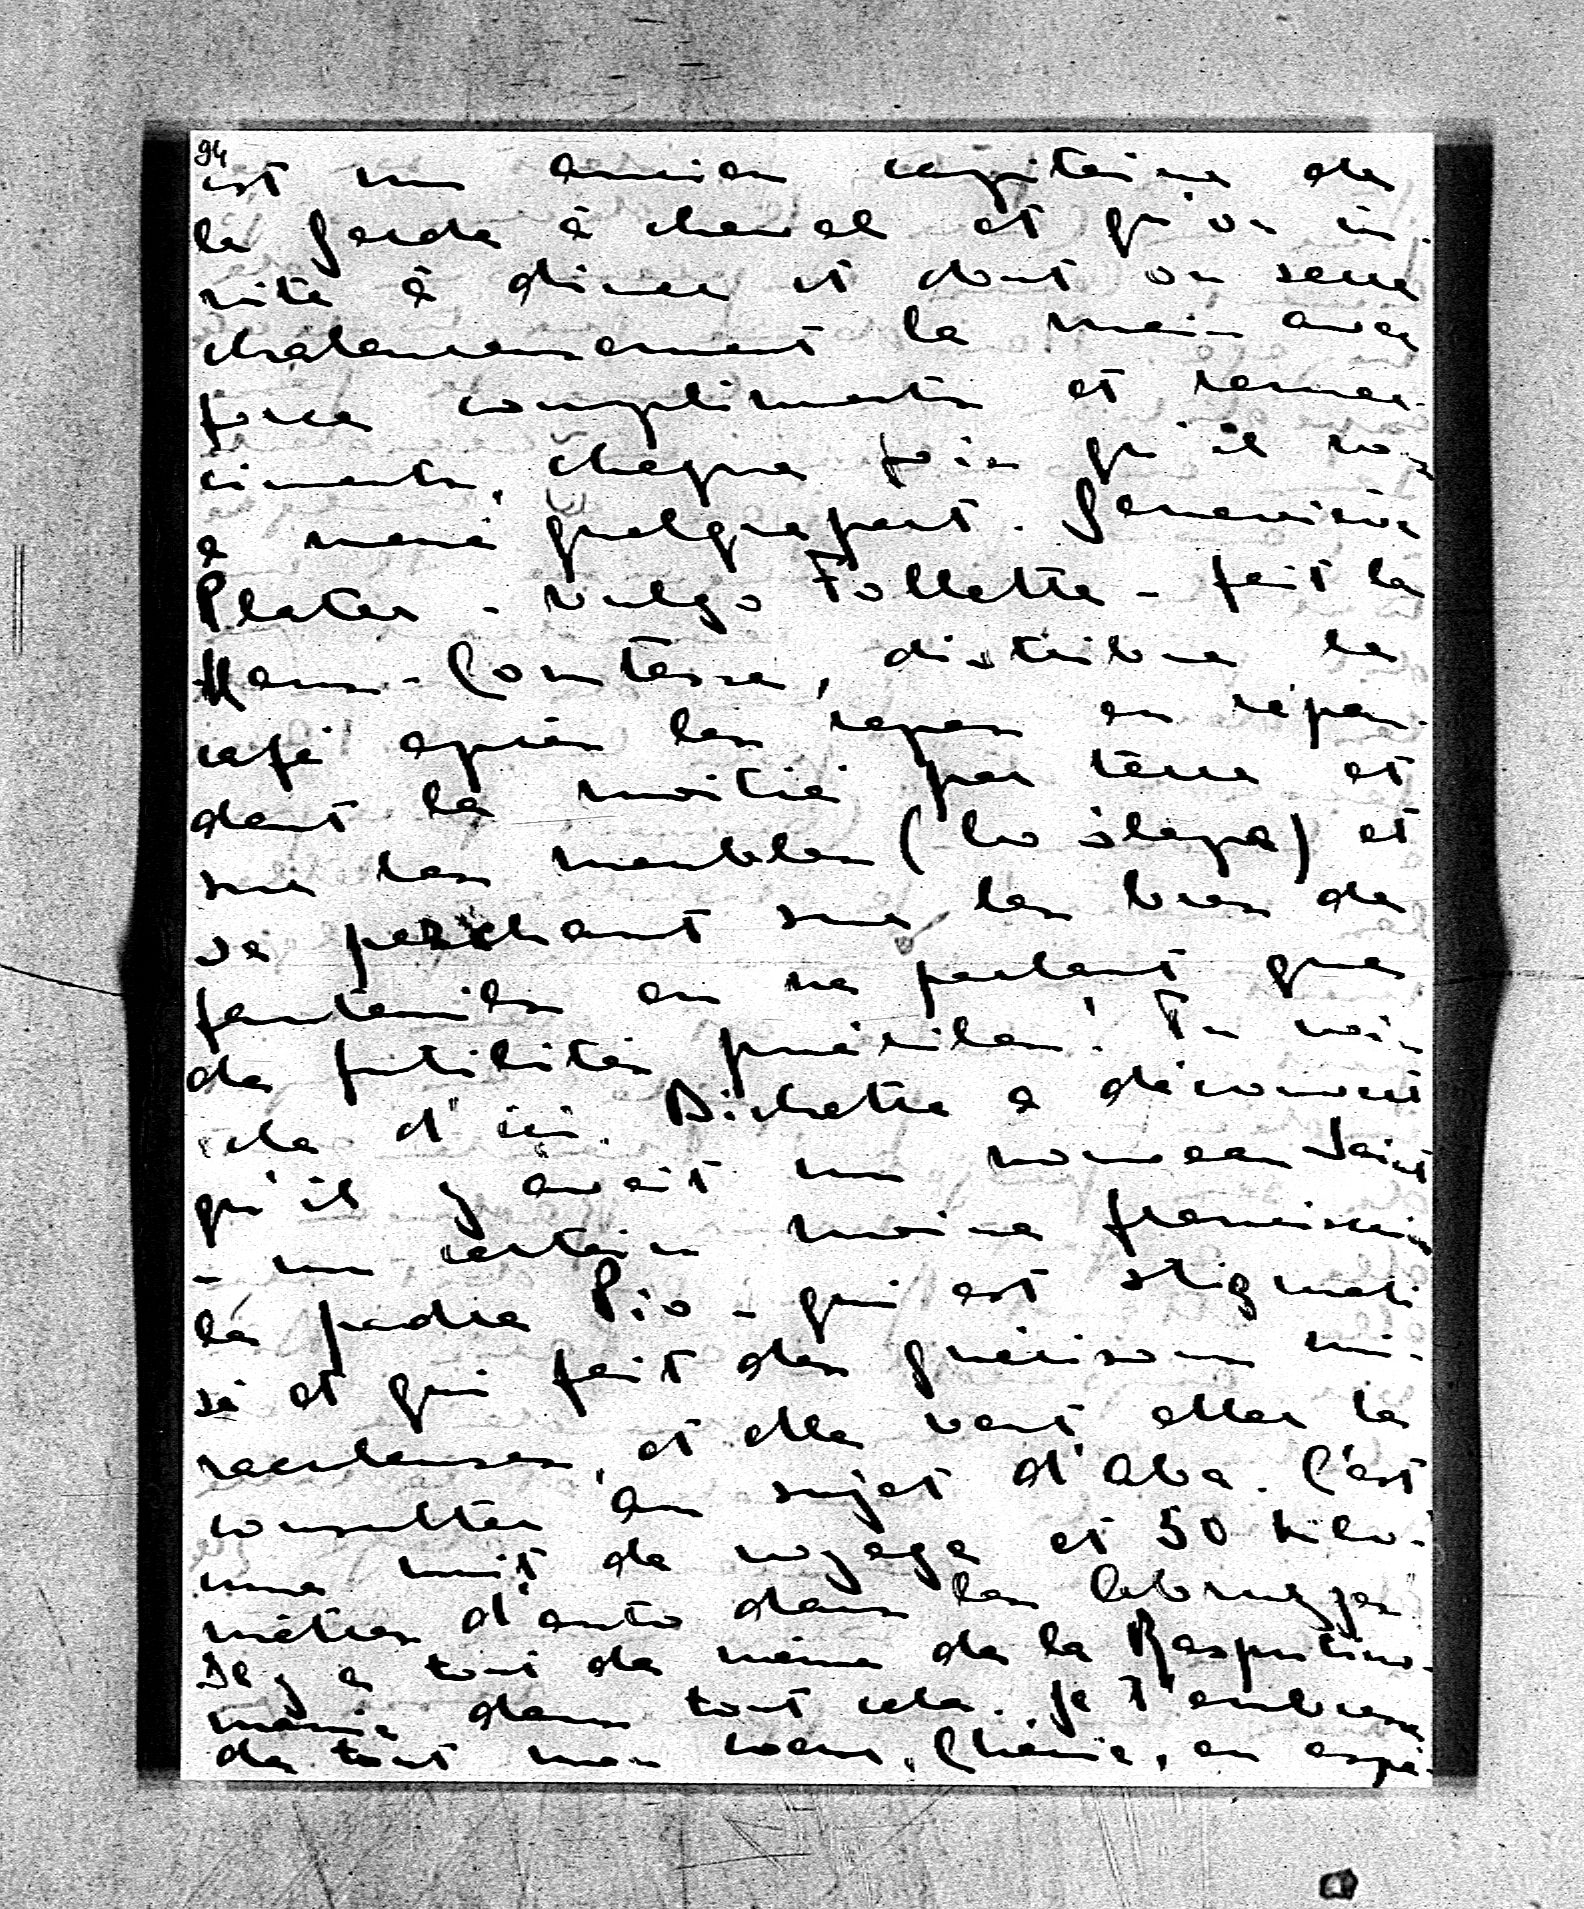 94
est un ancien capitaine de
la garde à cheval et qu'on in-
vite à dîner et dont on serre
chaleureusement la main avec
force compliments et remer-
ciments, chaque fois qu'il vous
a mené quelquepart. Geneviève
Plater - vulgo Follette - fait la
Haus-Comtesse, distribue le
café après les repas en répan-
dant la moitié par terre et
sur les meubles et
se perchant sur les bras de
fauteuils en ne parlant que
de futilités puériles! Tu vois
cela d'ici. Bichette a découvert
qu'il y avait un nouveau Saint
- un certain moine franciscain
le padre Pio - qui est stigmati-
sé et qui fait des guérisons mi-
raculeuses, et elle veut aller le
consulter au sujet d'Aba. C'est
une nuit de voyage et 50 kilo-
mètres d'auto dans les Abruzzes.
Il y a tout de même de la Raspoutino-
manie dans tout cela. Je t'embrasse
de tout mon coeur, Chérie, en espé-